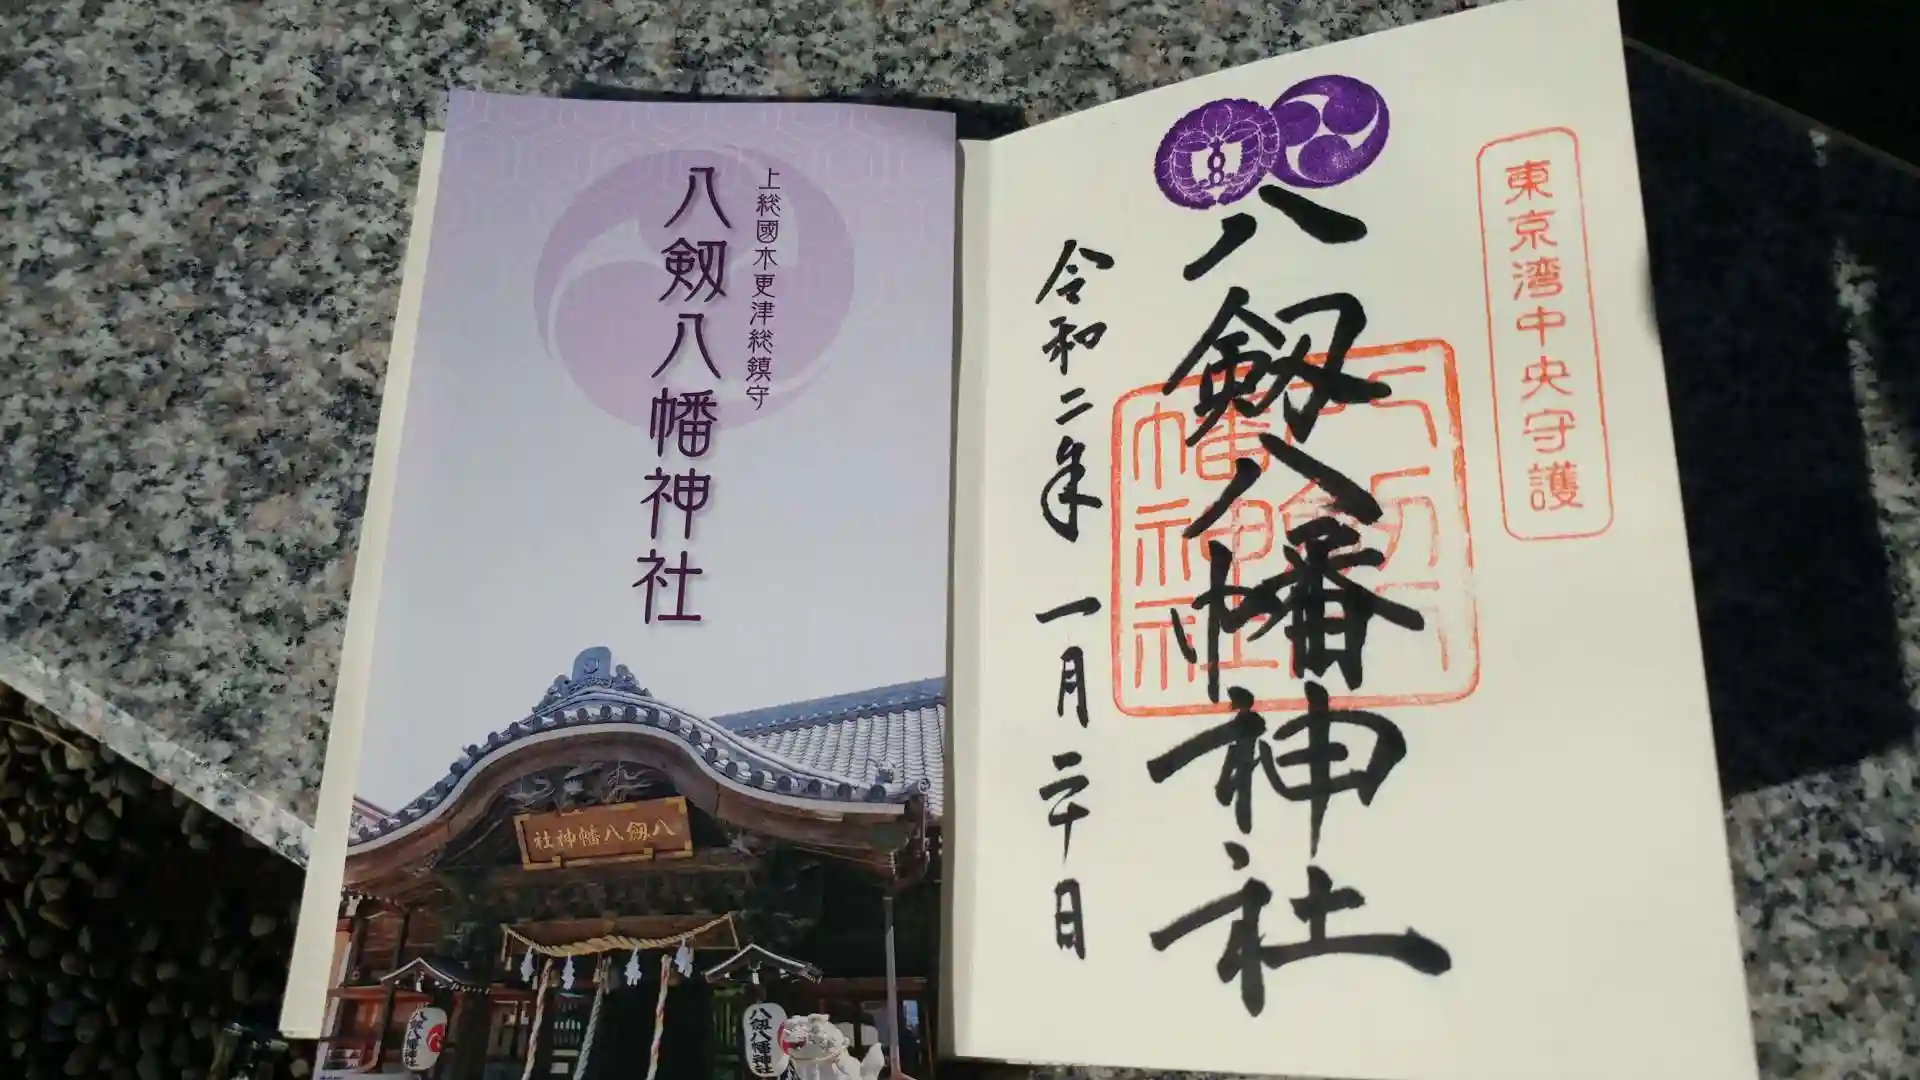 上総國木更津総鎮守
八剱八幡神社
八剱八幡神社
八剱八幡神社
八剱八幡神社
東京湾中央守護
八剱八幡神社
令和二年 一月二十日